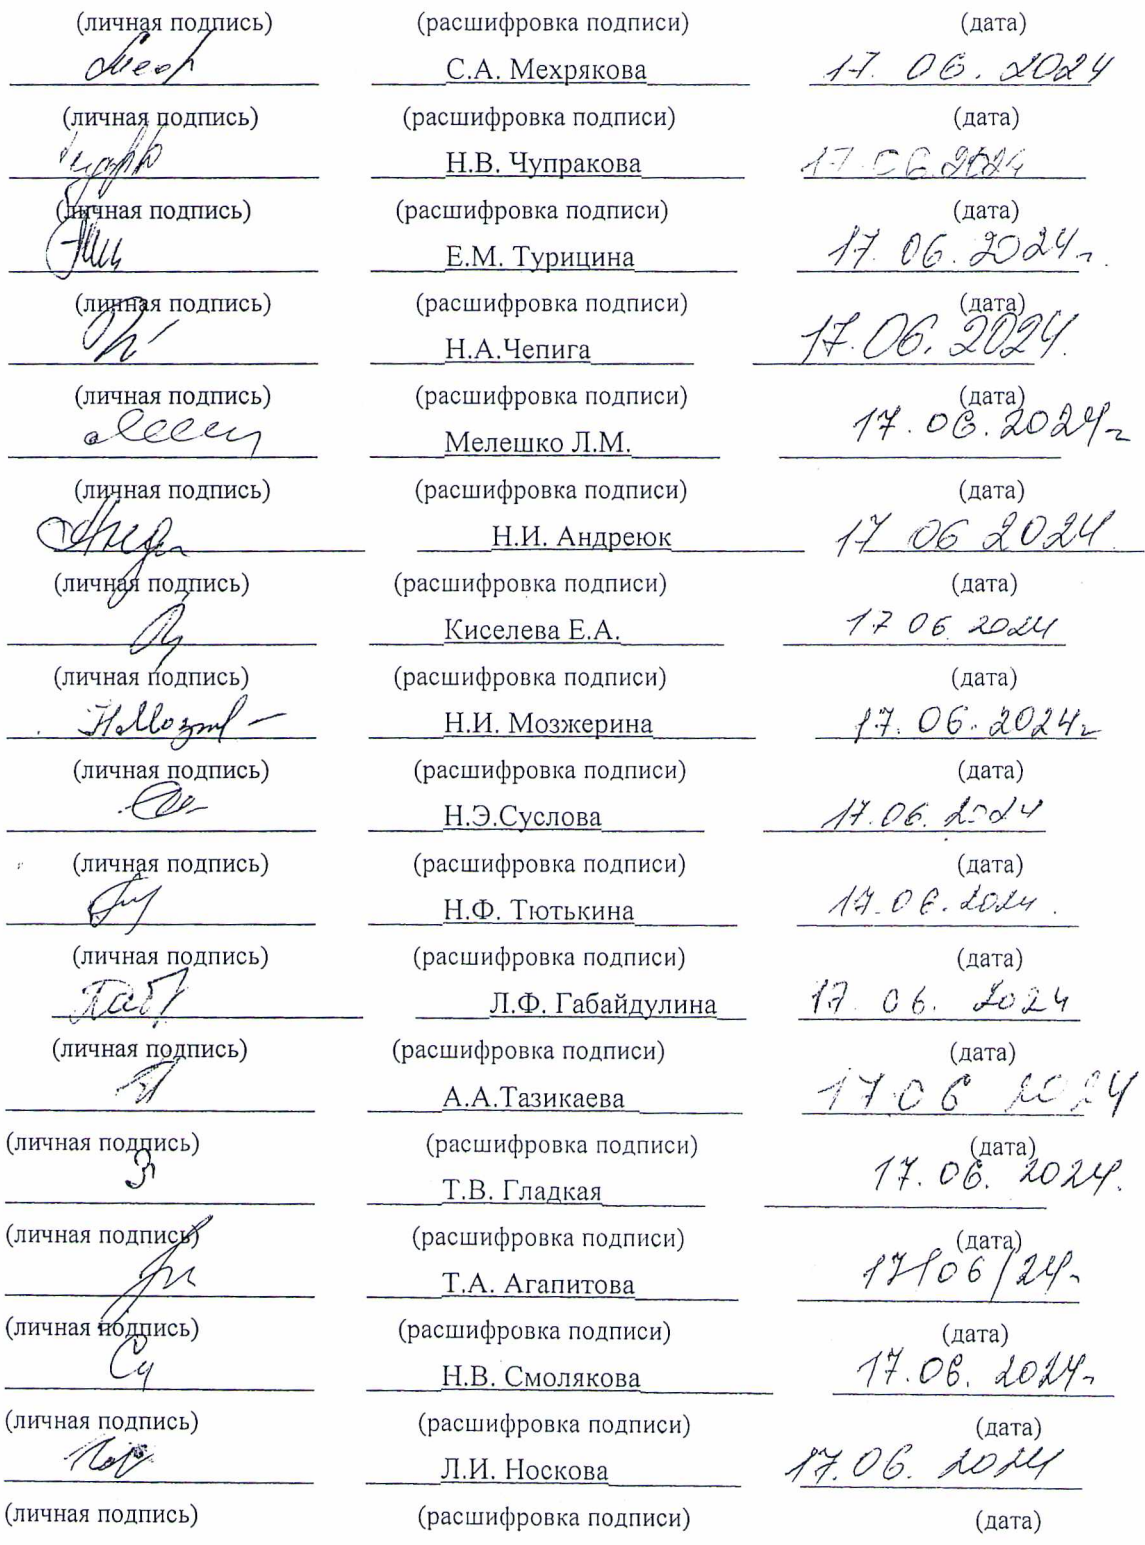 (личная подпись) (расшифровка подписи) (дата)
С.А. Мехрякова 17. 06. 2024
(личная подпись) (расшифровка подписи) (дата)
Н.В. Чупракова 17 06.2024
(личная подпись) (расшифровка подписи) (дата)
Е.М. Турицина 17. 06. 2024г.
(личная подпись) (расшифровка подписи) (дата)
Н.А.Чепига 17.06. 2024.
(личная подпись) (расшифровка подписи) (дата)
Мелешко Л.М. 17. 06. 2024г
(личная подпись) (расшифровка подписи) (дата)
Н.И. Андреюк 17 06 2024.
(личная подпись) (расшифровка подписи) (дата)
Киселева Е.А. 17 06 2024
(личная подпись) (расшифровка подписи) (дата)
Н.И. Мозжерина 17. 06. 2024г
(личная подпись) (расшифровка подписи) (дата)
Н.Э.Суслова 17.06. 2024
(личная подпись) (расшифровка подписи) (дата)
Н.Ф. Тютькина 17.06. 2024.
(личная подпись) (расшифровка подписи) (дата)
Л.Ф. Габайдулина 17. 06. 2024
(личная подпись) (расшифровка подписи) (дата)
А.А.Тазикаева 17 06 2024
(личная подпись) (расшифровка подписи) (дата)
Т.В. Гладкая 17. 06. 2024.
(личная подпись) (расшифровка подписи) (дата)
Т.А. Агапитова 17/06/24г
(личная подпись) (расшифровка подписи) (дата)
Н.В. Смолякова 17.06. 2024г
(личная подпись) (расшифровка подписи) (дата)
Л.И. Носкова 17.06. 2024
(личная подпись) (расшифровка подписи) (дата)